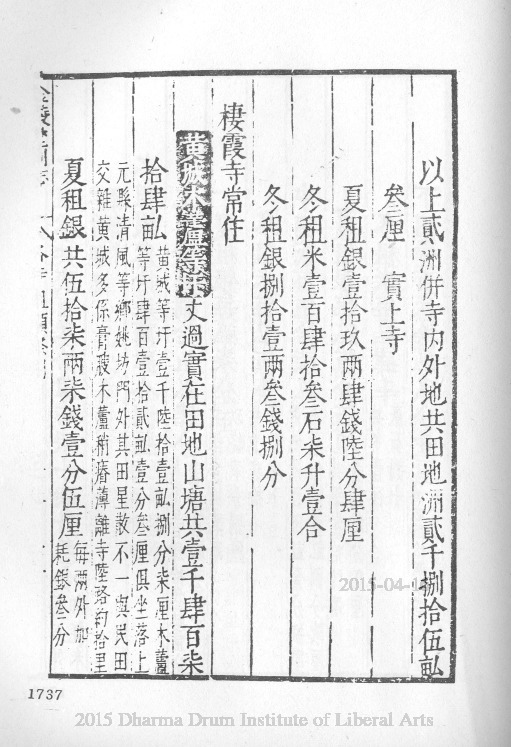 以上貳洲併寺內外地共田地洲貳千捌拾伍畝
叁厘 實上寺
夏租銀壹拾玖兩肆錢陸分肆厘
冬租米壹百肆拾叁石柒升壹合
冬租銀捌拾壹兩叁錢捌分
棲霞寺常住
黄城木蘆墨等圩丈過實在田地山塘共壹千肆百柒
拾肆畝黃城等圩壹千陸拾壹畝捌分柒厘木蘆
等圩肆百壹拾貳畝壹分叁厘俱坐落上
元縣清風等鄉姚坊門外其田星散不一與民田
交雜黃城多係膏腴木蘆稍瘠薄離寺陸路約拾里
夏租銀共伍拾柒兩柒錢壹分伍厘每兩外加
耗銀叁分
1737
2015-04-
2015 Dharma Drum Institute of Liberal Arts